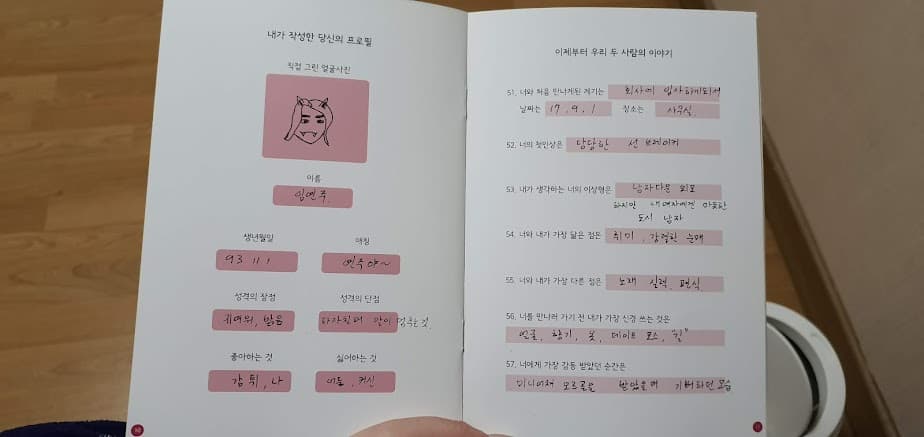 내가 작성한 당신의 프로필
직접 그린 얼굴사진
이름
임연주.
생년월일
애칭
93 11 1
연주야~
성격의 장점
성격의 단점
귀여워, 밝음
말이 멈추는 것.
좋아하는 것
싫어하는 것
감튀, 나
어둠, 귀신
이제부터 우리 두 사람의 이야기
51. 너와 처음 만나게된 계기는 회사에 입사하게되서
날짜는 17. 9. 1 장소는 사무실.
52. 너의 첫인상은 당당한 선 브레이커
53. 내가 생각하는 너의 이상형은 남자다운 외모
하지만 내여자에겐 따뜻한
도시 남자
54. 너와 내가 가장 닮은 점은 취미, 강렬한 눈매
55. 너와 내가 가장 다른 점은 노래 실력, 편식
56. 너를 만나러 가기 전 내가 가장 신경 쓰는 것은
얼굴, 향기, 옷, 데이트 코스, "길"
57. 너에게 가장 감동 받았던 순간은
미니어쳐 오르골을 받았을때 기뻐하던 모습